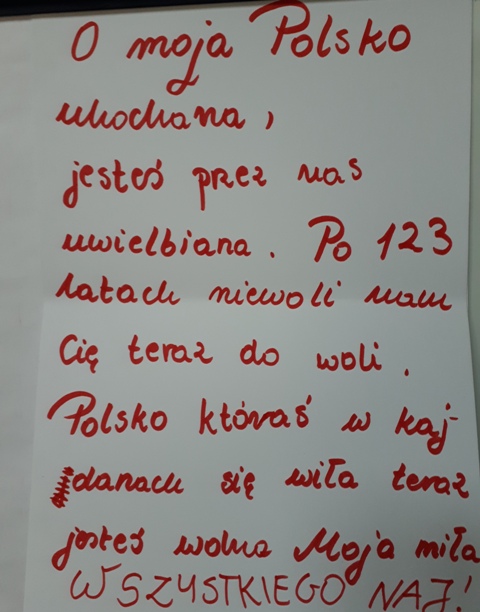 O moja Polsko
ukochana,
jesteś prez nas
uwielbiana. Po 123
latach niewoli mam
Cię teraz do woli.
Polsko któraś w kaj-
danach się wiła teraz
jesteś wolna Moja miła
WSZYSTKIEGO NAJ!